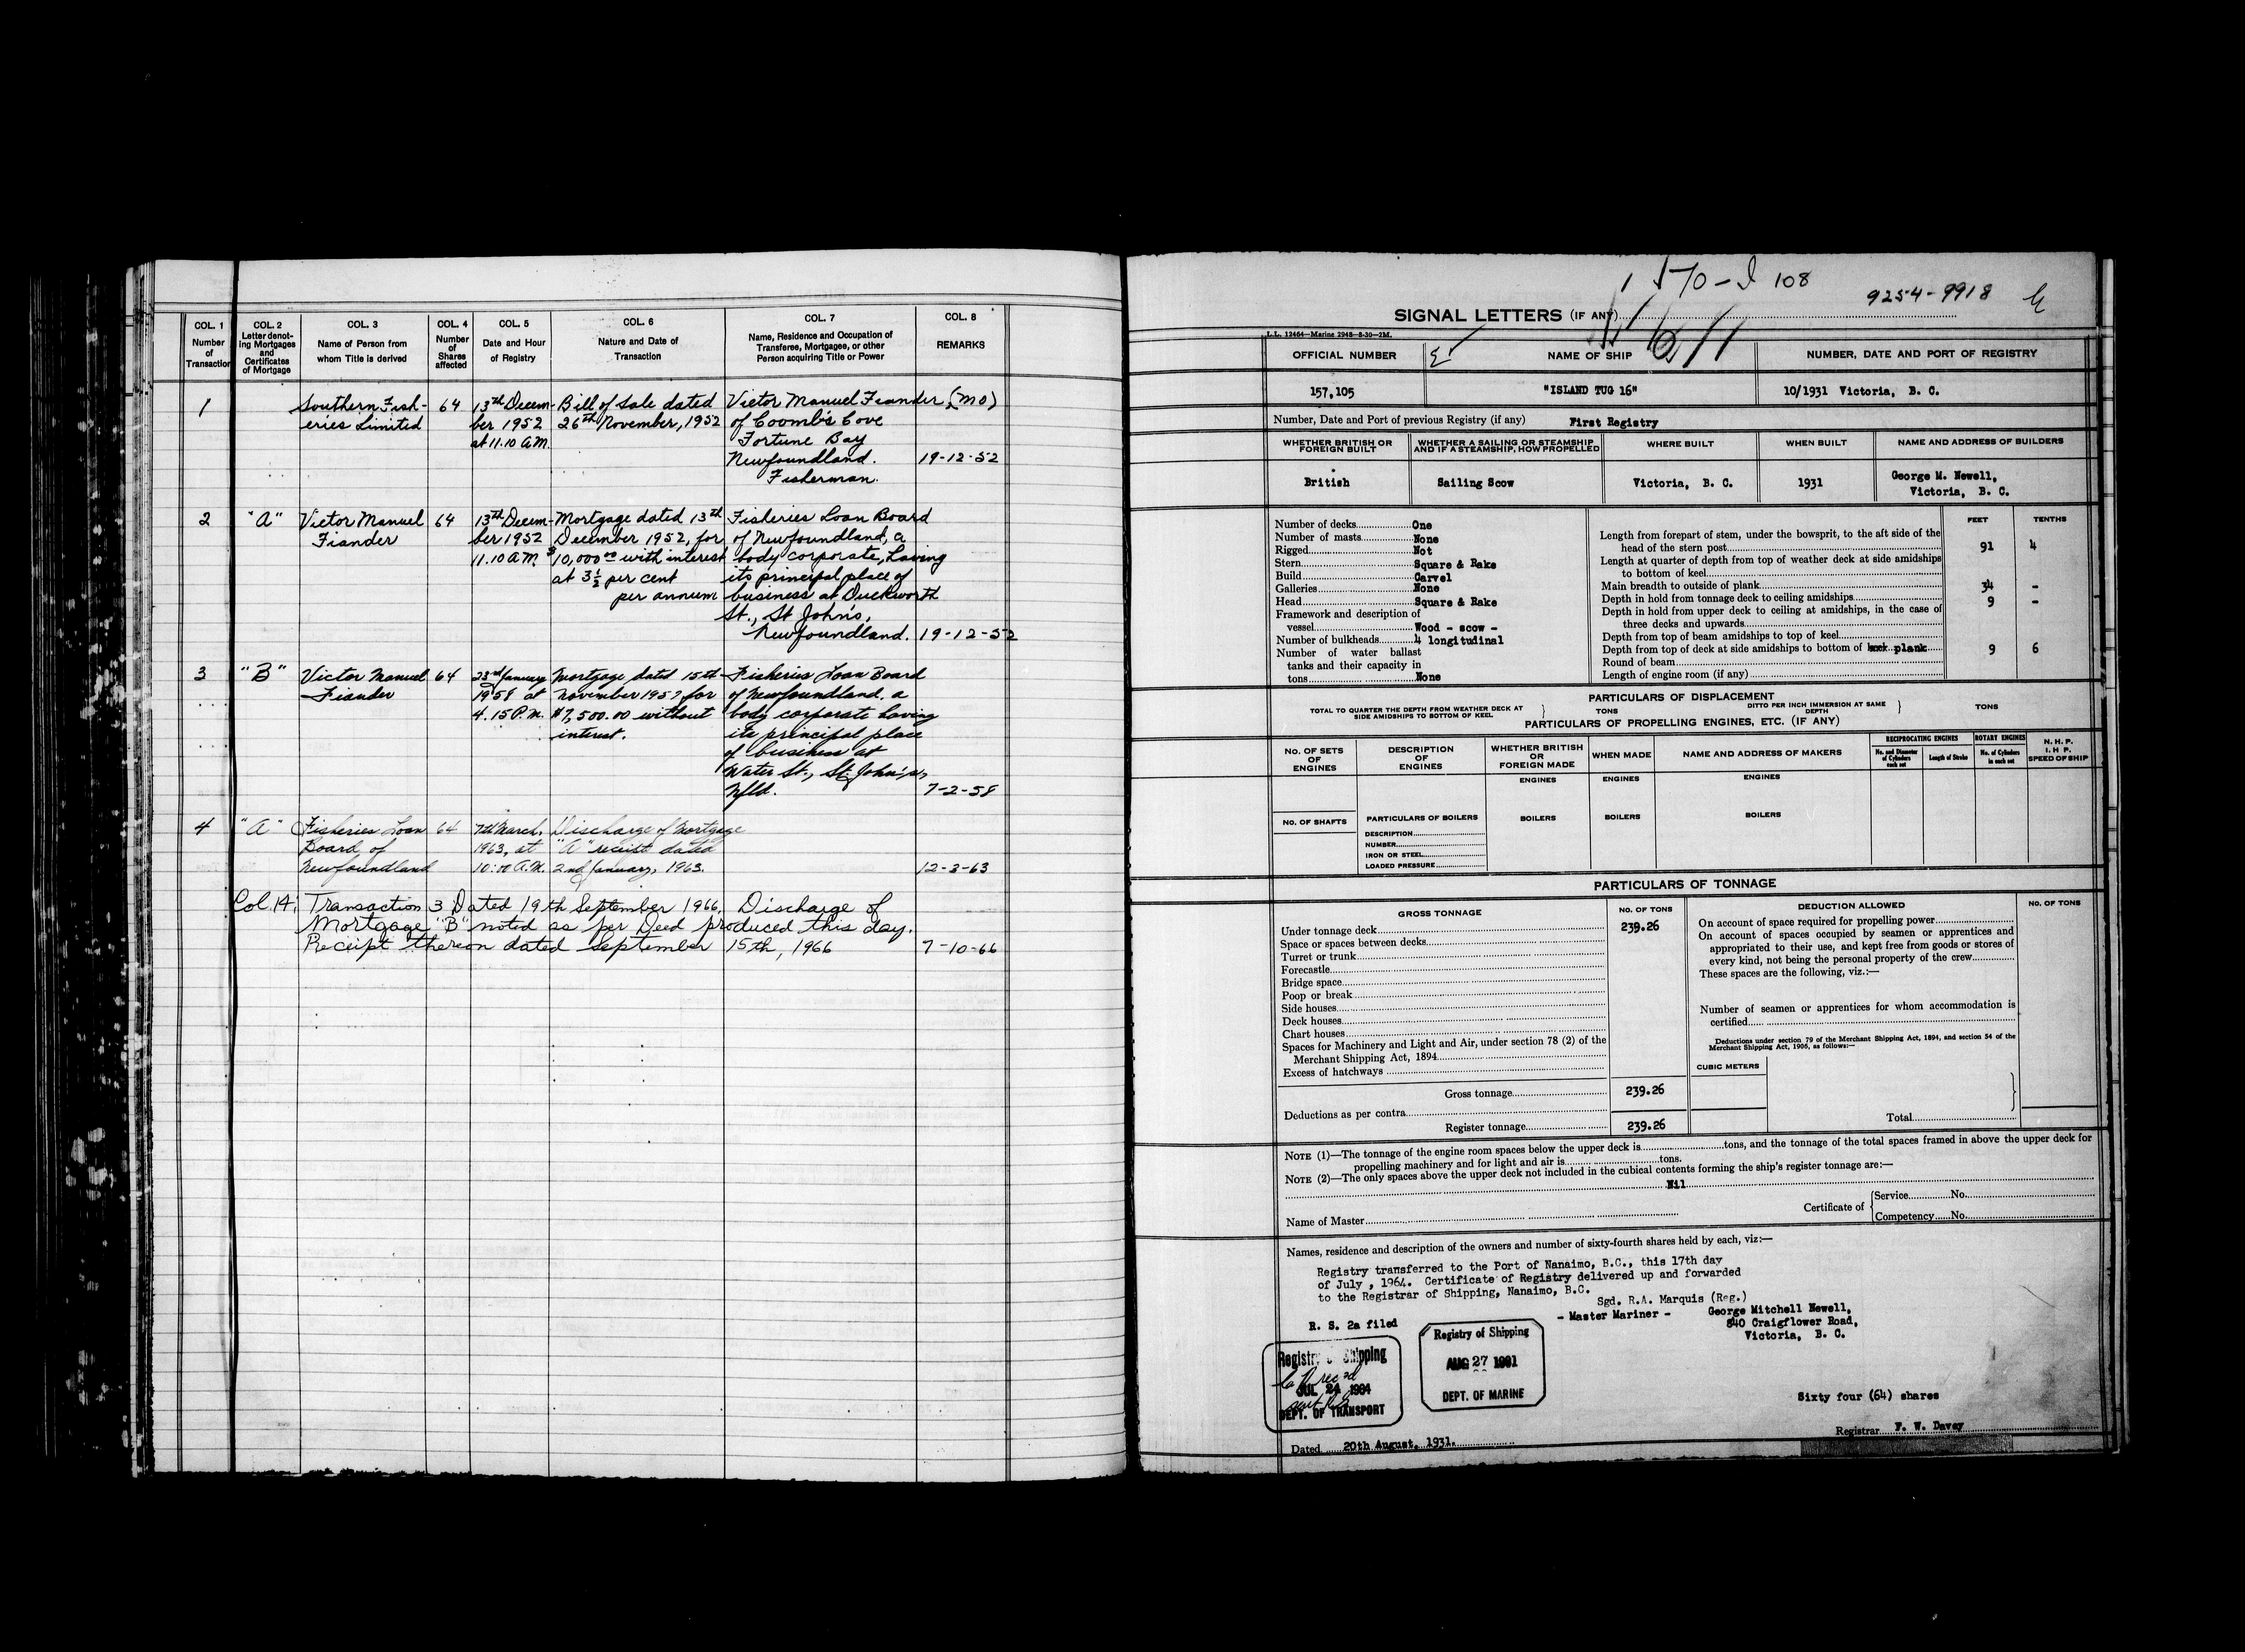 COL. 1
Number
of
Transaction
COL. 2
Letter denot-
ing Mortgages
and
Certificates
of Mortgage
COL. 3
Name of Person from
whom Title is derived
COL. 4
Number
of
Shares
affected
COL. 5
Date and Hour
of Registry
COL. 6
Nature and Date of
Transaction
COL. 7
Name, Residence and Occupation of
Transferee, Mortgagee, or other
Person acquiring Title or Power
COL. 8
REMARKS
1
Southern Fish-
eries Limited
64
13th Decem-
ber 1952
at 11.10 A.M.
Bill of Sale dated
26th November, 1952
Victor Manuel Fiander (MO)
of Coomb's Cove
Fortune Bay
Newfoundland.
Fisherman.
19-12-52
2
"A"
Victor Manuel
Fiander
64
13th Decem-
ber 1952
11.10 A.M.
Mortgage dated 13th
December 1952, for
$10,000.00 with interest
at 3½ per cent
per annum
Fisheries Loan Board
of Newfoundland, a
body corporate, having
its principal place of
business at Duckworth
St., St John's,
Newfoundland.
19-12-52
3
"B"
Victor Manuel
Fiander
64
23rd January
1958 at
4.15 P.M.
Mortgage dated 15th
November 1957 for
$7,500.00 without
interest.
Fisheries Loan Board
of Newfoundland, a
body corporate having
its principal place
of business at
Water St., St. John's,
Nfld.
7-2-58
4
"A"
Fisheries Loan
Board of
Newfoundland
64
7th March,
1963, at
10:00 A.M.
Discharge of Mortgage
"A" receipt dated
2nd January, 1963.
12-3-63
Col 14; Transaction 3 Dated 19th September 1966. Discharge of
Mortgage "B" noted as per Deed produced this day.
Receipt thereon dated September 15th, 1966
7-10-66
108
9254-9918
SIGNAL LETTERS (IF ANY)
L.L. 12464—Marine 2948—8-30—2M.
OFFICIAL NUMBER
NAME OF SHIP
NUMBER, DATE AND PORT OF REGISTRY
157,105
"ISLAND TUG 16"
10/1931 Victoria, B. C.
Number, Date and Port of previous Registry (if any) First Registry
WHETHER BRITISH OR
FOREIGN BUILT
WHETHER A SAILING OR STEAMSHIP
AND IF A STEAMSHIP, HOW PROPELLED
WHERE BUILT
WHEN BUILT
NAME AND ADDRESS OF BUILDERS
British
Sailing Scow
Victoria, B. C.
1931
George M. Newell,
Victoria, B. C.
Number of decks One
Number of masts None
Rigged Not
Stern Square & Rake
Build Carvel
Galleries None
Head Square & Rake
Framework and description of
vessel Wood - scow -
Number of bulkheads 4 longitudinal
Number of water ballast
tanks and their capacity in
tons None
FEET
TENTHS
Length from forepart of stem, under the bowsprit, to the aft side of the
head of the stern post 91 4
Length at quarter of depth from top of weather deck at side amidships
to bottom of keel
Main breadth to outside of plank 34 -
Depth in hold from tonnage deck to ceiling amidships 9 -
Depth in hold from upper deck to ceiling at amidships, in the case of
three decks and upwards
Depth from top of beam amidships to top of keel
Depth from top of deck at side amidships to bottom of plank 9 6
Round of beam
Length of engine room (if any)
PARTICULARS OF DISPLACEMENT
TOTAL TO QUARTER THE DEPTH FROM WEATHER DECK AT
SIDE AMIDSHIPS TO BOTTOM OF KEEL
TONS
DITTO PER INCH IMMERSION AT SAME
DEPTH
TONS
PARTICULARS OF PROPELLING ENGINES, ETC. (IF ANY)
NO. OF SETS
OF
ENGINES
DESCRIPTION
OF
ENGINES
WHETHER BRITISH
OR
FOREIGN MADE
WHEN MADE
NAME AND ADDRESS OF MAKERS
RECIPROCATING ENGINES
No. and Diameter
of Cylinders
each set
Length of Stroke
ROTARY ENGINES
No. of Cylinders
in each set
N. H. P.
I. H P.
SPEED OF SHIP
ENGINES
ENGINES
ENGINES
NO. OF SHAFTS
PARTICULARS OF BOILERS
DESCRIPTION
NUMBER
IRON OR STEEL
LOADED PRESSURE
BOILERS
BOILERS
BOILERS
PARTICULARS OF TONNAGE
GROSS TONNAGE
NO. OF TONS
DEDUCTION ALLOWED
NO. OF TONS
Under tonnage deck 239.26
Space or spaces between decks
Turret or trunk
Forecastle
Bridge space
Poop or break
Side houses
Deck houses
Chart houses
Spaces for Machinery and Light and Air, under section 78 (2) of the
Merchant Shipping Act, 1894
Excess of hatchways
Gross tonnage 239.26
Deductions as per contra
Register tonnage 239.26
On account of space required for propelling power
On account of spaces occupied by seamen or apprentices and
appropriated to their use, and kept free from goods or stores of
every kind, not being the personal property of the crew
These spaces are the following, viz.:—
Number of seamen or apprentices for whom accommodation is
certified
Deductions under section 79 of the Merchant Shipping Act, 1894, and section 54 of the
Merchant Shipping Act, 1906, as follows:—
CUBIC METERS
Total
NOTE (1)—The tonnage of the engine room spaces below the upper deck is tons, and the tonnage of the total spaces framed in above the upper deck for
propelling machinery and for light and air is tons.
NOTE (2)—The only spaces above the upper deck not included in the cubical contents forming the ship's register tonnage are:—
Nil
Name of Master
Certificate of
Service No.
Competency No.
Names, residence and description of the owners and number of sixty-fourth shares held by each, viz:—
Registry transferred to the Port of Nanaimo, B.C., this 17th day
of July , 1964. Certificate of Registry delivered up and forwarded
to the Registrar of Shipping, Nanaimo, B.C.
Sgd. R.A. Marquis (Reg.)
R. S. 2a filed
- Master Mariner -
George Mitchell Newell,
840 Craigflower Road,
Victoria, B. C.
Registry of Shipping
JUL 24 1964
DEPT. OF TRANSPORT
Registry of Shipping
AUG 27 1931
DEPT. OF MARINE
Sixty four (64) shares
Registrar F. W. Davey
Dated 20th August, 1931.